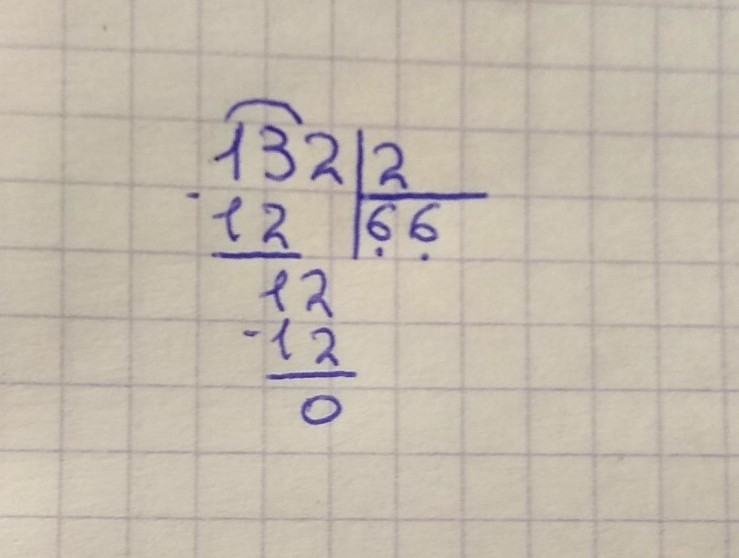 132|2
-12 66
12
-12
0